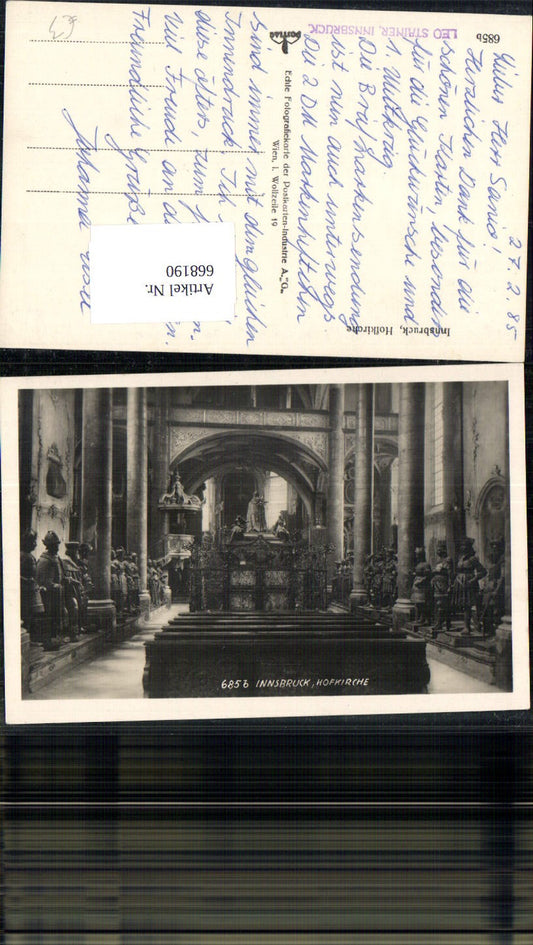 27.2.85
Lieber Herr Sanio!
Herzlichen Dank für die
schönen Karten, besonders
für die Glückwünsche und
1. Multkrig.
Die Briefmarkensendung
ist nun auch unterwegs.
Die 2 DM Markenheftchen
sind immer mit dem gleichen
Innendruck. Ich
diese öfters, zum
Viel Freude an
Freundliche Grüße
Johanna
Innsbruck, Hofkirche
Echte Fotografiekarte der Postkarten-Industrie A. G.
Wien, I. Wollzeile 19
LEO STAINER, INNSBRUCK
685b
Artikel Nr.
668190
685b INNSBRUCK, HOFKIRCHE